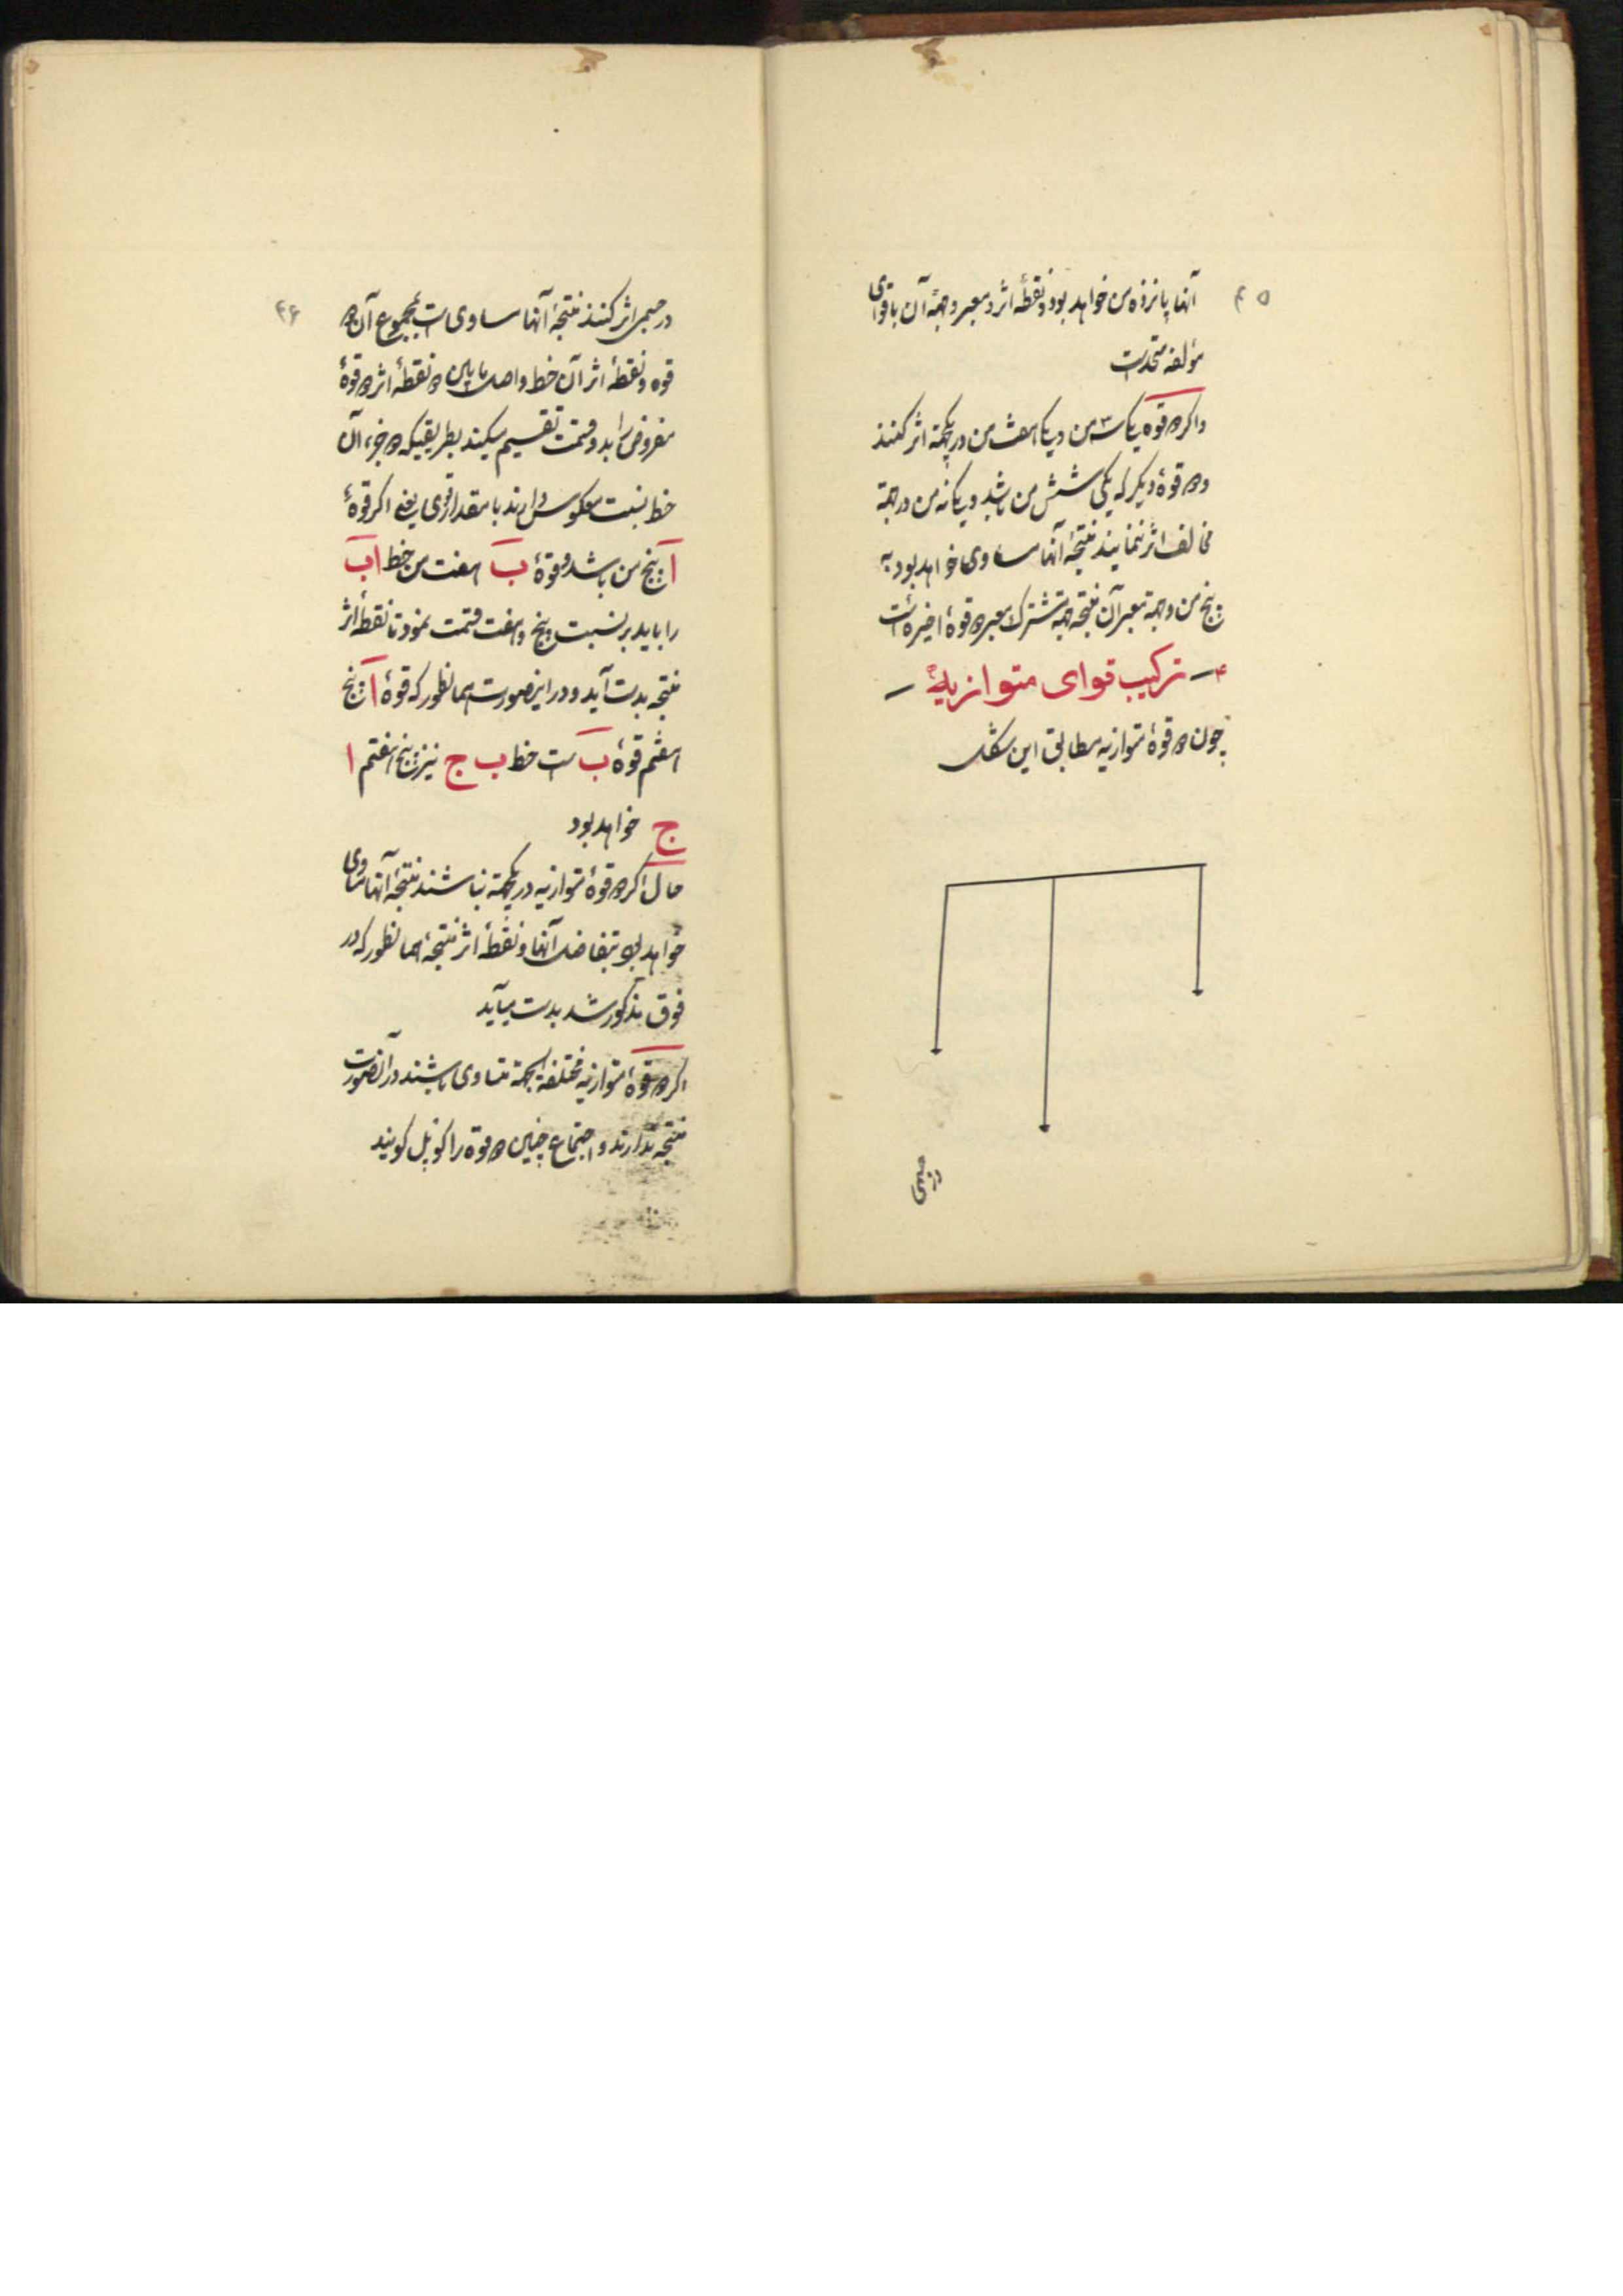 ۴۵
آنها پانزده من خواهد بود و نقطهٔ اثر و معبر و جهة آن با قوای
مؤلفه متحد است
و اگر دو قوه یکی سه من و یکی هشت من در یکجهة اثر کنند
و دو قوهٔ دیگر که یکی شش من باشد و یکی نه من در جهة
مخالف اثر نمایند نتیجهٔ آنها مساوی خواهد بود به
پنج من و جهة و معبر آن نتیجه جهة مشترک و معبر دو قوهٔ اخیره است
۴ – ترکیب قوای متوازیه –
چون دو قوهٔ متوازیه مطابق این شکل
در جسمی
۴۶
در جسمی اثر کنند نتیجهٔ آنها مساوی است بمجموع آن دو
قوه و نقطهٔ اثر آن خط واصل مابین دو نقطهٔ اثر دو قوهٔ
مفروض را بدو قسمت تقسیم میکند بطریقیکه دو جزء آن
خط نسبت معکوس دارند با مقدار قوی یعنی اگر قوهٔ
ا پنج من باشد و قوهٔ ب هفت من خط اب
را باید بر نسبت پنج و هفت قسمت نمود تا نقطهٔ اثر
نتیجه بدست آید و در اینصورت همانطور که قوهٔ ا پنج
هفتم قوهٔ ب است خط ب ج نیز پنج هفتم ا
ج خواهد بود
حال اگر دو قوهٔ متوازیه در یکجهة نباشند نتیجهٔ آنها مساوی
خواهد بود بتفاضل آنها و نقطهٔ اثر نتیجه همانطور که در
فوق مذکور شد بدست میآید
اگر دو قوهٔ متوازیه مختلفة الجهة متساوی باشند در آنصورت
نتیجه ندارند و اجتماع چنین دو قوه را کوپل گویند